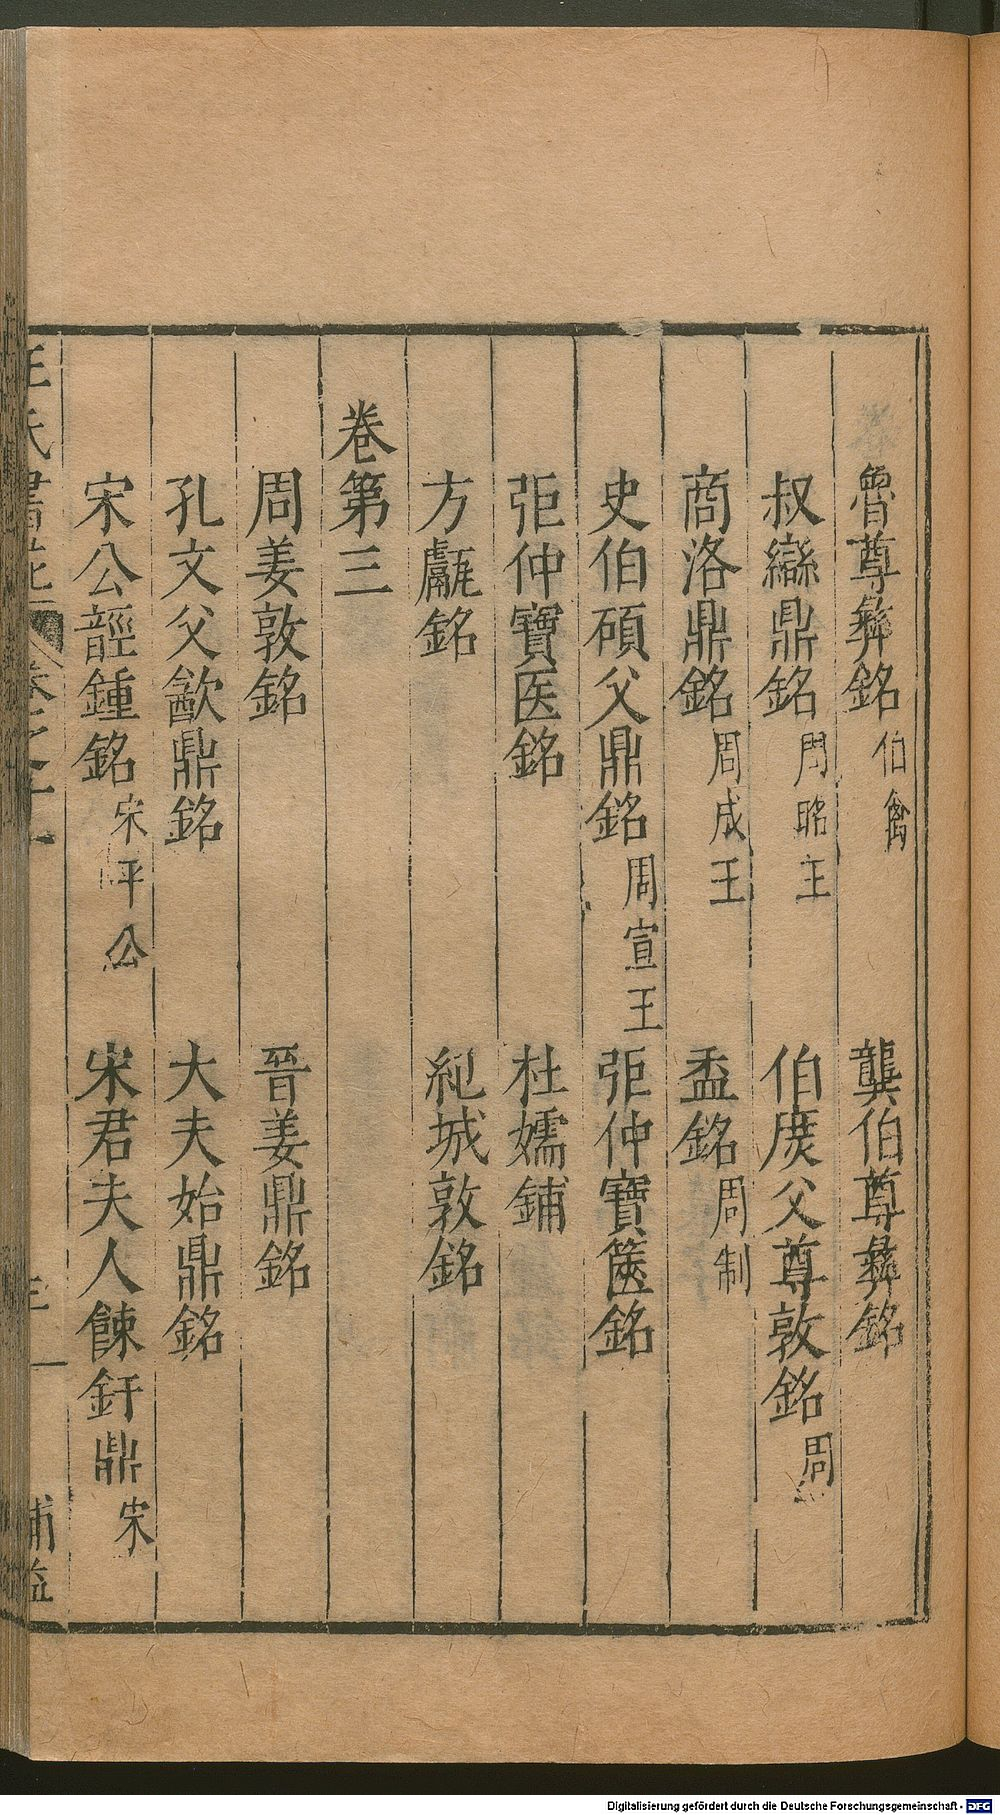 魯尊彝銘 伯禽 龔伯尊彝銘
叔䜌鼎銘 周昭王 伯庶父尊敦銘 周
商洛鼎銘 周成王 盉銘 周制
史伯碩父鼎銘 周宣王 弡仲寶簠銘
弡仲寶医銘 杜嬬鋪
方甗銘 𥿆城敦銘
卷第三
周姜敦銘 晉姜鼎銘
孔文父歖鼎銘 大夫始鼎銘
宋公䪫鍾銘 宋平公 宋君夫人餗釪鼎 宋
王氏書苑 卷之十 補益
Digitalisierung gefördert durch die Deutsche Forschungsgemeinschaft - DFG